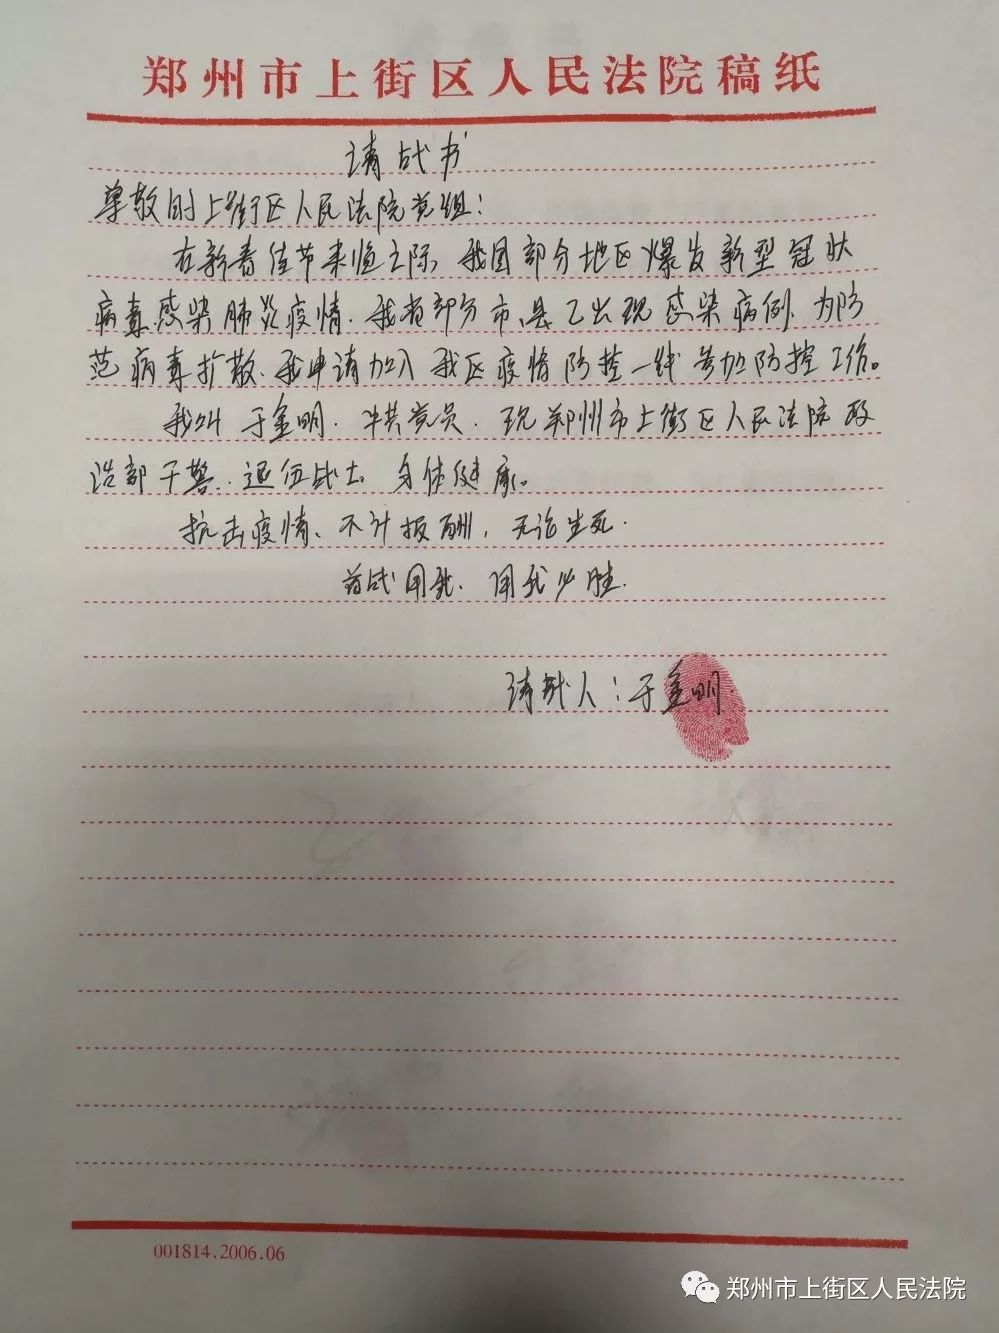 郑州市上街区人民法院稿纸
请战书
尊敬的上街区人民法院党组：
在新春佳节来临之际，我国部分地区爆发新型冠状
病毒感染肺炎疫情，我省部分市、县已出现感染病例，为防
范病毒扩散，我申请加入我区疫情防控一线参加防控工作。
我叫于金明，中共党员，现郑州市上街区人民法院政
治部干警，退伍战士，身体健康。
抗击疫情、不计报酬，无论生死.
若战用我，用我必胜.
请战人：于金明.
001814.2006.06
郑州市上街区人民法院